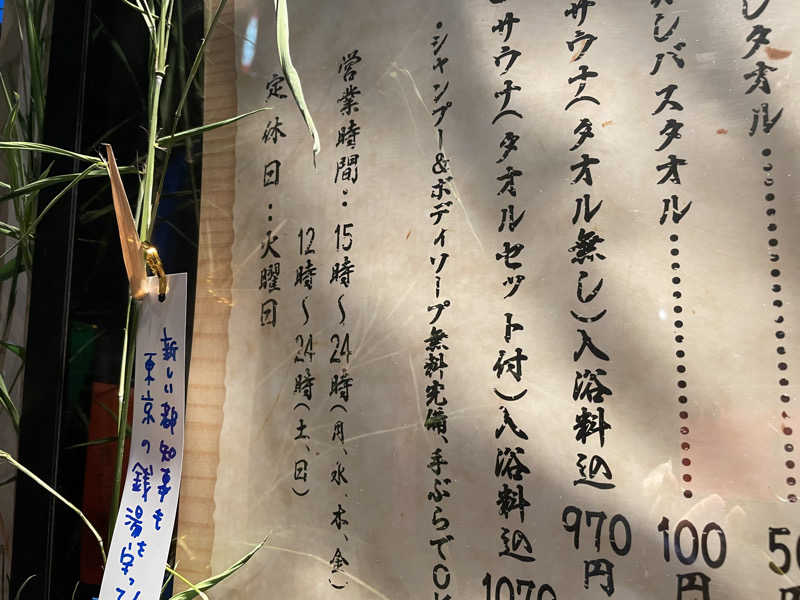 ンタオル・・・・・・・・・・・・50
バスタオル・・・・・・・・・・・・100円
サウナ(タオル無し)入浴料込 970円
サウナ(タオルセット付)入浴料込 1070
・シャンプー&ボディソープ無料完備、手ぶらでOK
営業時間: 15時〜24時(月、水、木、金)
12時〜24時(土、日)
定休日:火曜日
新しい都知事も
東京の銭湯を守って